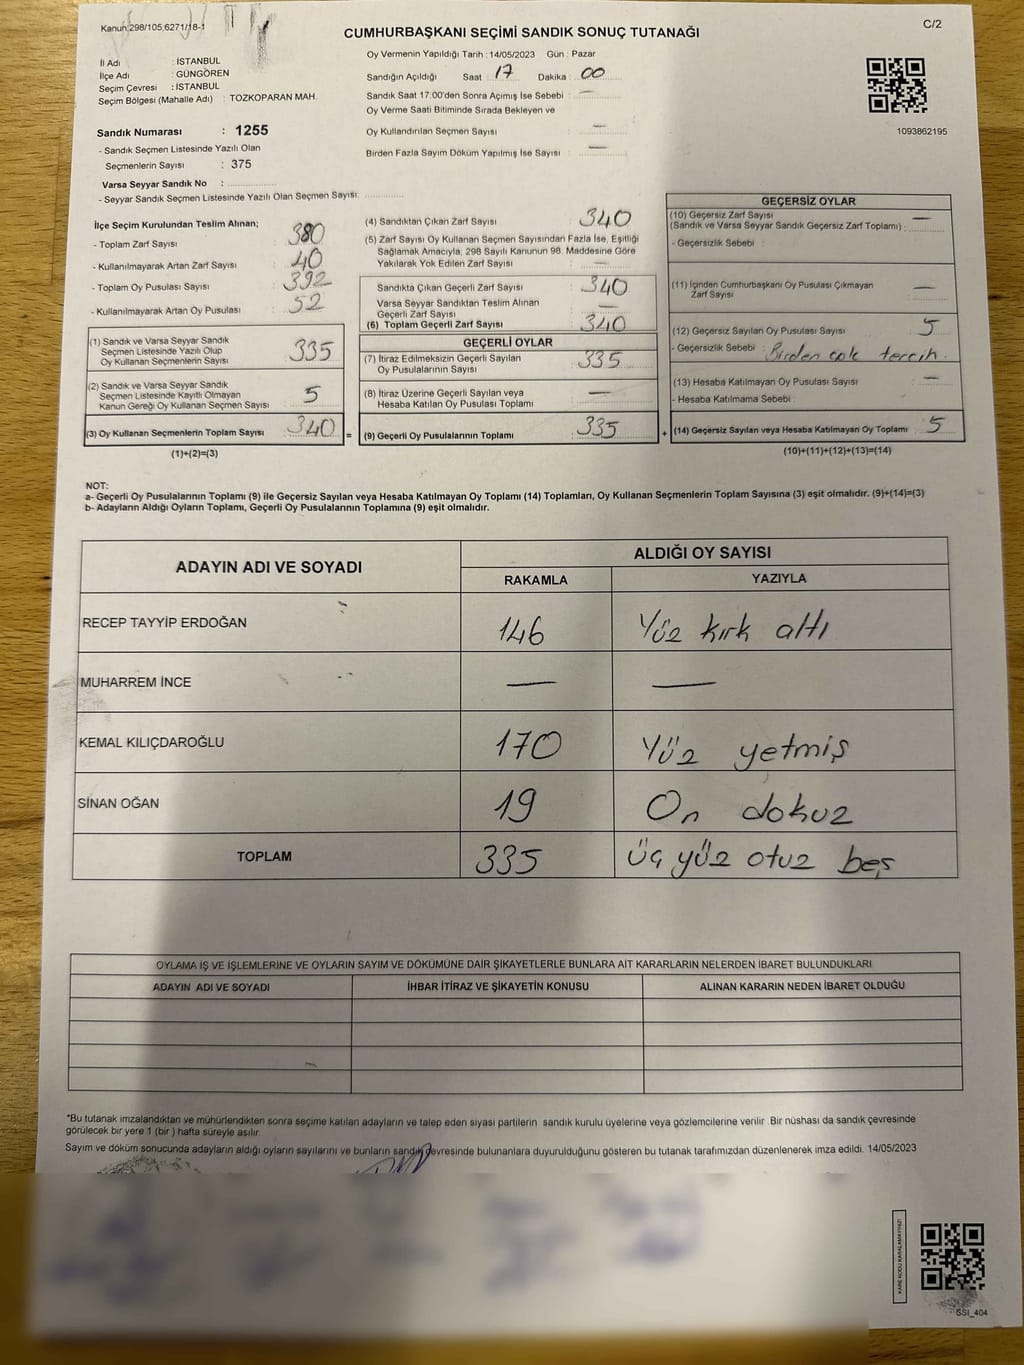 Kanun 298/105,6271/18-1
C/2
CUMHURBAŞKANI SEÇİMİ SANDIK SONUÇ TUTANAĞI
İl Adı : İSTANBUL
İlçe Adı : GÜNGÖREN
Seçim Çevresi : İSTANBUL
Seçim Bölgesi (Mahalle Adı) : TOZKOPARAN MAH.
Sandık Numarası : 1255
- Sandık Seçmen Listesinde Yazılı Olan
Seçmenlerin Sayısı : 375
Varsa Seyyar Sandık No :
- Seyyar Sandık Seçmen Listesinde Yazılı Olan Seçmen Sayısı:
Oy Vermenin Yapıldığı Tarih : 14/05/2023 Gün : Pazar
Sandığın Açıldığı Saat : 17 Dakika : 00
Sandık Saat 17:00'den Sonra Açımış İse Sebebi : —
Oy Verme Saati Bitiminde Sırada Bekleyen ve
Oy Kullandırılan Seçmen Sayısı : —
Birden Fazla Sayım Döküm Yapılmış İse Sayısı : —
1093862195
İlçe Seçim Kurulundan Teslim Alınan;
- Toplam Zarf Sayısı : 380
- Kullanılmayarak Artan Zarf Sayısı : 40
- Toplam Oy Pusulası Sayısı : 392
- Kullanılmayarak Artan Oy Pusulası : 52
(1) Sandık ve Varsa Seyyar Sandık
Seçmen Listesinde Yazılı Olup
Oy Kullanan Seçmenlerin Sayısı : 335
(2) Sandık ve Varsa Seyyar Sandık
Seçmen Listesinde Kayıtlı Olmayan
Kanun Gereği Oy Kullanan Seçmen Sayısı : 5
(3) Oy Kullanan Seçmenlerin Toplam Sayısı : 340
(1)+(2)=(3)
(4) Sandıktan Çıkan Zarf Sayısı : 340
(5) Zarf Sayısı Oy Kullanan Seçmen Sayısından Fazla İse, Eşitliği
Sağlamak Amacıyla, 298 Sayılı Kanunun 98. Maddesine Göre
Yakılarak Yok Edilen Zarf Sayısı : —
Sandıkta Çıkan Geçerli Zarf Sayısı : 340
Varsa Seyyar Sandıktan Teslim Alınan
Geçerli Zarf Sayısı : —
(6) Toplam Geçerli Zarf Sayısı : 340
GEÇERLİ OYLAR
(7) İtiraz Edilmeksizin Geçerli Sayılan
Oy Pusulalarının Sayısı : 335
(8) İtiraz Üzerine Geçerli Sayılan veya
Hesaba Katılan Oy Pusulası Toplamı : —
= (9) Geçerli Oy Pusulalarının Toplamı : 335 +
GEÇERSİZ OYLAR
(10) Geçersiz Zarf Sayısı
(Sandık ve Varsa Seyyar Sandık Geçersiz Zarf Toplamı) : —
- Geçersizlik Sebebi :
(11) İçinden Cumhurbaşkanı Oy Pusulası Çıkmayan
Zarf Sayısı : —
(12) Geçersiz Sayılan Oy Pusulası Sayısı : 5
- Geçersizlik Sebebi : Birden çok tercih.
(13) Hesaba Katılmayan Oy Pusulası Sayısı : —
- Hesaba Katılmama Sebebi :
(14) Geçersiz Sayılan veya Hesaba Katılmayan Oy Toplamı : 5
(10)+(11)+(12)+(13)=(14)
NOT:
a- Geçerli Oy Pusulalarının Toplamı (9) ile Geçersiz Sayılan veya Hesaba Katılmayan Oy Toplamı (14) Toplamları, Oy Kullanan Seçmenlerin Toplam Sayısına (3) eşit olmalıdır. (9)+(14)=(3)
b- Adayların Aldığı Oyların Toplamı, Geçerli Oy Pusulalarının Toplamına (9) eşit olmalıdır.
ADAYIN ADI VE SOYADI ALDIĞI OY SAYISI
RAKAMLA YAZIYLA
RECEP TAYYİP ERDOĞAN 146 Yüz kırk altı
MUHARREM İNCE — —
KEMAL KILIÇDAROĞLU 170 Yüz yetmiş
SİNAN OĞAN 19 On dokuz
TOPLAM 335 Üç yüz otuz beş
OYLAMA İŞ VE İŞLEMLERİNE VE OYLARIN SAYIM VE DÖKÜMÜNE DAİR ŞİKAYETLERLE BUNLARA AİT KARARLARIN NELERDEN İBARET BULUNDUKLARI
ADAYIN ADI VE SOYADI İHBAR İTİRAZ VE ŞİKAYETİN KONUSU ALINAN KARARIN NEDEN İBARET OLDUĞU
*Bu tutanak imzalandıktan ve mühürlendikten sonra seçime katılan adayların ve talep eden siyasi partilerin sandık kurulu üyelerine veya gözlemcilerine verilir. Bir nüshası da sandık çevresinde
görülecek bir yere 1 (bir) hafta süreyle asılır.
Sayım ve döküm sonucunda adayların aldığı oyların sayılarını ve bunların sandık çevresinde bulunanlara duyurulduğunu gösteren bu tutanak tarafımızdan düzenlenerek imza edildi. 14/05/2023
KARE KODU KARALAMAYINIZ!
SSİ_404